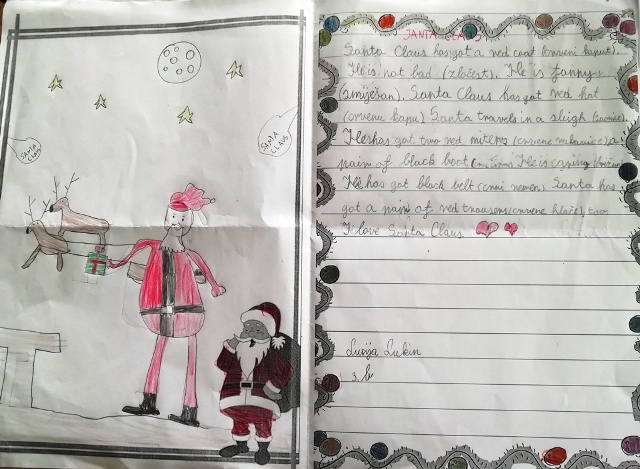 SANTA CLAUS
SANTA CLAUS
JANTA CLAUS
Santa Claus has got a red coat (crveni kaput).
He is not bad (zločest). He is fanny
(smiješan). Santa Claus has got red hat
(crvenu kapu) Santa travels in a sleigh
He has got two red mitens (crvene rukavice) a
pain of black boot He is caring
He has got black belt (crni remen). Santa has
got a pain of red trousens (crvene hlače), too
I love Santa Claus
Lucija Lukin
3. b